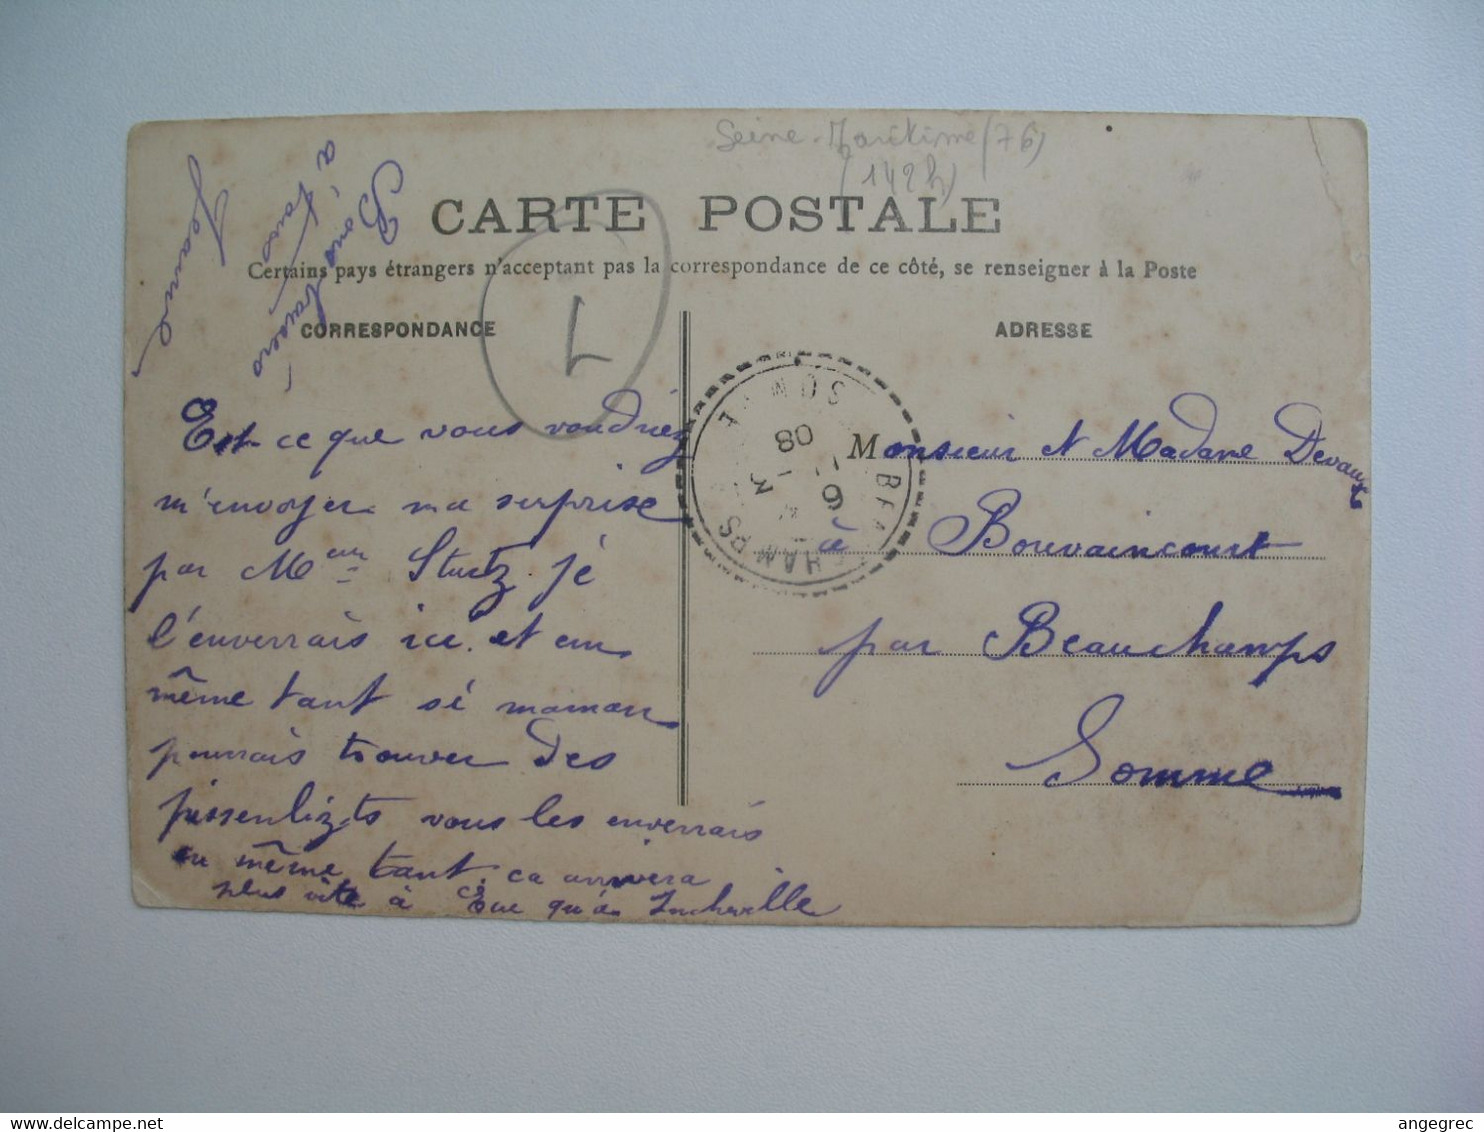 Seine-Maritime (76)
(142h)
CARTE POSTALE
Certains pays étrangers n'acceptant pas la correspondance de ce côté, se renseigner à la Poste
CORRESPONDANCE
ADRESSE
1
Bons baisers
à tous
Jeanne
Est ce que vous voudriez
m'envoyer ma surprise
par Mme Stutz je
l'enverrais ici et en
même tant sé maman
pourrais trouver des
pissenlizts vous les enverrais
en même tant ca arrivera
plus vite à Eue qu'à Incheville
BEAUCHAMPS
SOMME
6
3
08
Monsieur et Madame Devaux
à Bouvaincourt
par Beauchamps
Somme
angegrec